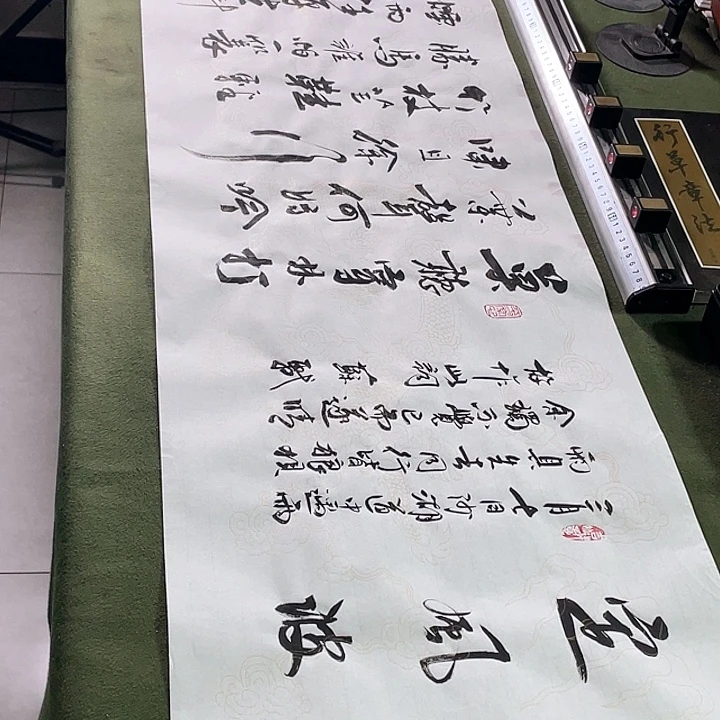 定風波
三月七日沙湖道中遇雨
雨具先去同行皆狼狽
余獨不覺已而遂晴
故作此詞 蘇軾
莫聽穿林打
葉聲何妨吟
嘯且徐行
竹杖芒鞋輕
勝馬誰怕一蓑
行草章法